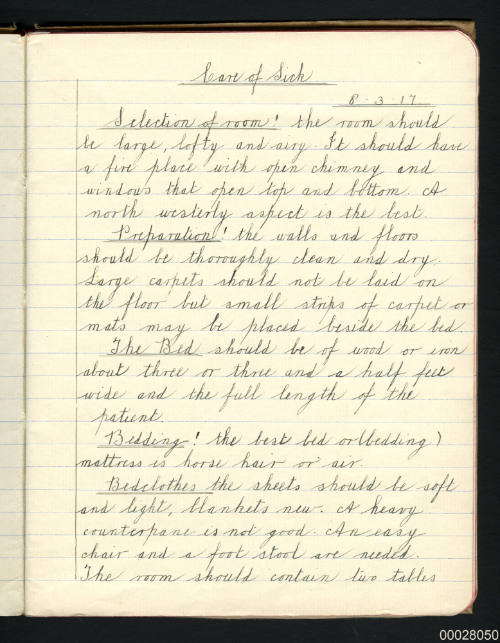 Care of Sick
8-3-17
Selection of room! the room should
be large, lofty and airy. It should have
a fire place with open chimney and
windows that open top and bottom. A
north westerly aspect is the best.
Preparation! the walls and floors
should be thoroughly clean and dry.
Large carpets should not be laid on
the floor but small strips of carpet or
mats may be placed beside the bed.
The Bed should be of wood or iron
about three or three and a half feet
wide and the full length of the
patient.
Bedding! the best bed or (bedding)
mattress is horse hair or air.
Bedclothes the sheets should be soft
and light, blankets new. A heavy
counterpane is not good. An easy
chair and a foot stool are needed.
The room should contain two tables
00028050